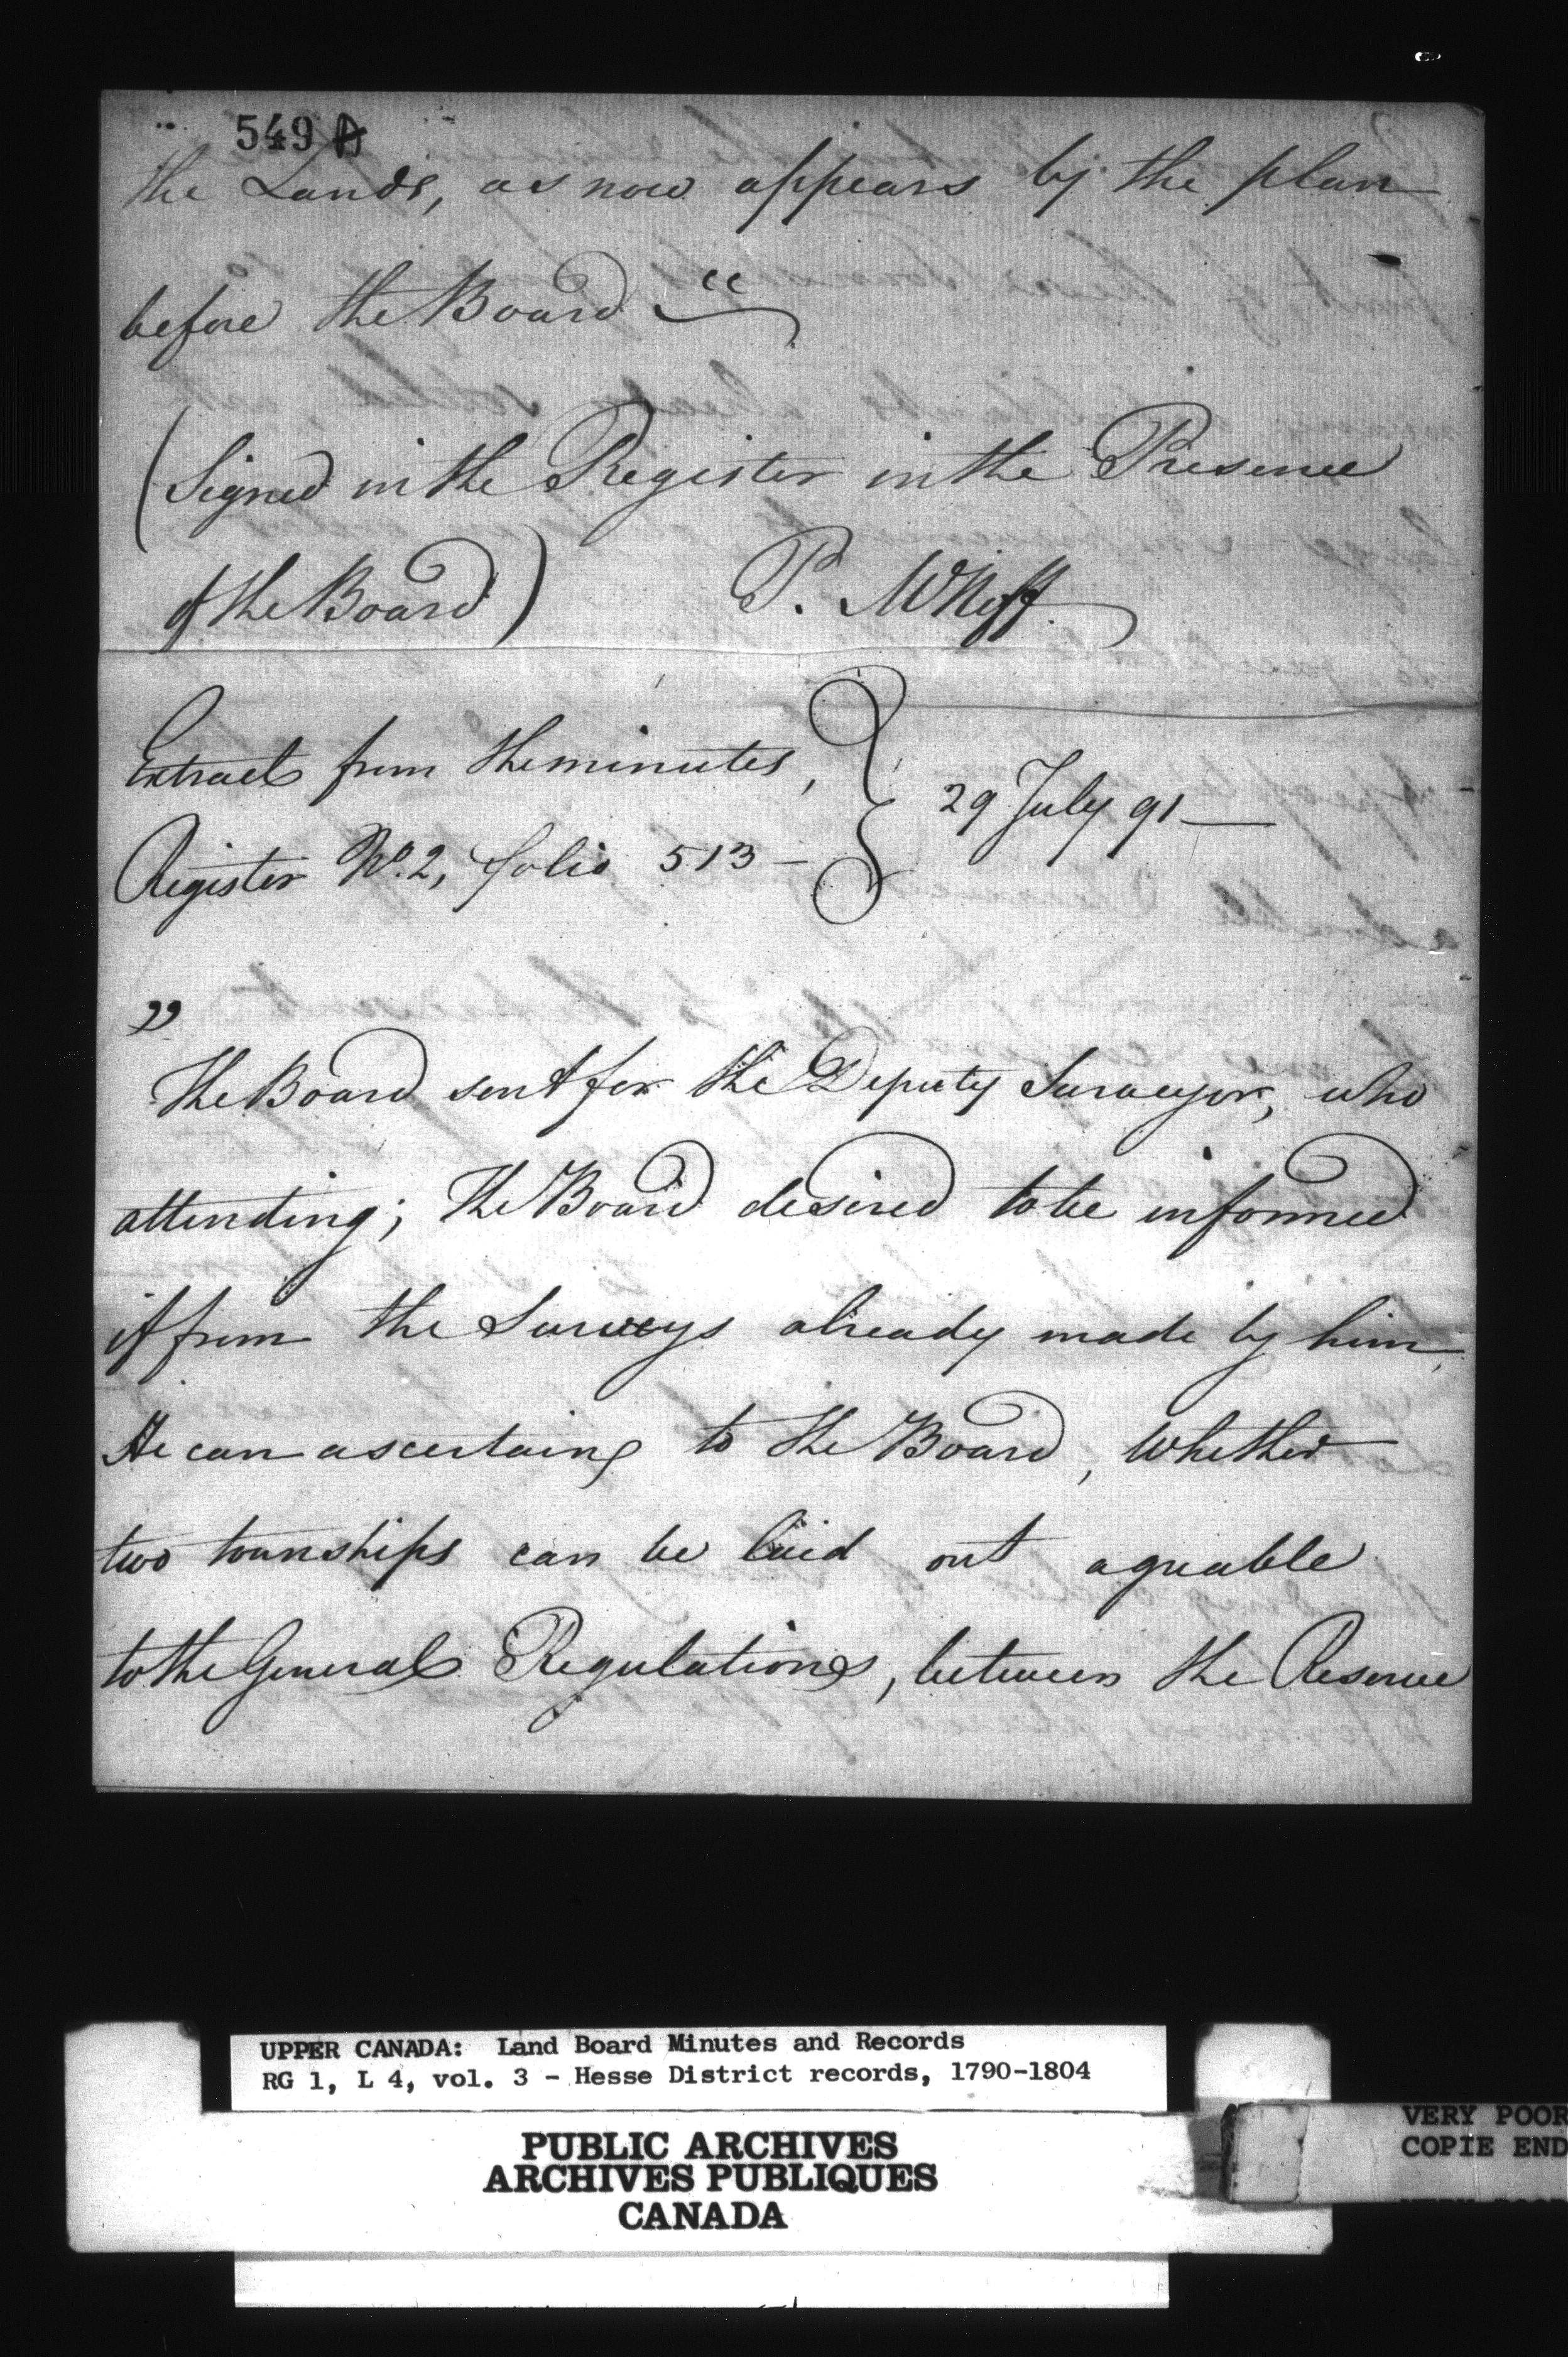 549 A
the Lands, as now appears by the plan
before the Board "
(Signed in the Register in the Presence
of the Board) P. McNiff.
Extract from the minutes,
Register No. 2, folio 513 - } 29 July 91 —
"
The Board sent for the Deputy Surveyor, who
attending; The Board desired to be informed
if from the Surveys already made by him,
He can ascertaing to the Board, Whether
two townships can be laid out agreable
to the General Regulations, between the Reserve
UPPER CANADA: Land Board Minutes and Records
RG 1, L 4, vol. 3 - Hesse District records, 1790-1804
PUBLIC ARCHIVES
ARCHIVES PUBLIQUES
CANADA
VERY POOR
COPIE END